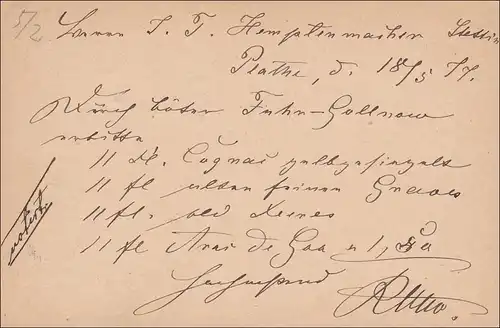 5/2
Herrn I. T. Hemptenmacher Stettin
Plathe, d. 18/5 77.
Durch böter Fuhr-Gollnow
erbitte
11 fl. Cognac gelbgesiegelt
11 fl alten feinen Graves
11 fl. old Xeres
11 fl Arac de Goa a 1,50
notirt
Hochachtend